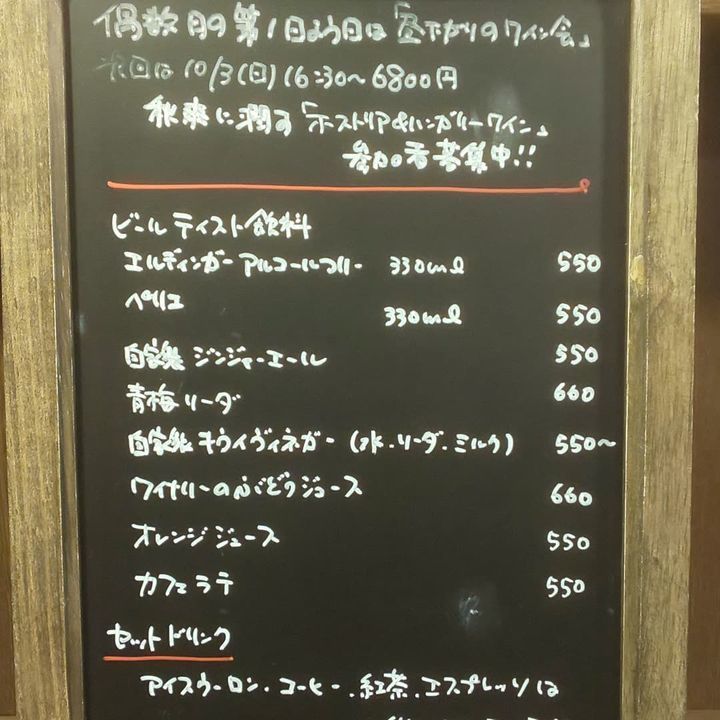 偶数月の第1日よう日は「昼下がりのワイン会」
次回は 10/3(日) 16:30〜 6800円
秋爽に潤す「オーストリア&ハンガリーワイン」
参加者募集中!!
ビールテイスト飲料
エルディンガーアルコールフリー 330ml 550
ペリエ 330ml 550
自家製 ジンジャーエール 550
青梅ソーダ 660
自家製 キウイヴィネガー (水・ソーダ・ミルク) 550〜
ワイナリーのぶどうジュース 660
オレンジジュース 550
カフェラテ 550
セットドリンク
アイスウーロン・コーヒー・紅茶・エスプレッソは